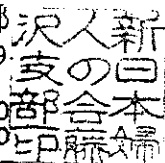 新日本婦
人の会藤
沢支部印